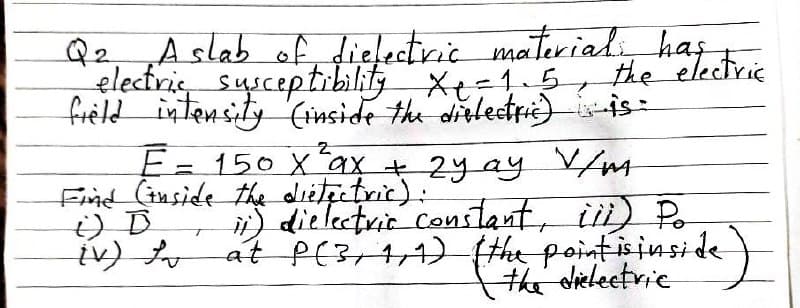 Q2 A slab of dielectric material has
electric susceptibility Xe=1.5, the electric
field intensity (inside the dielectric) is:
E = 150 X²ax + 2y ay V/m
Find (inside the dielectric):
i) D, ii) dielectric constant, iii) Po
iv) ρv at P(3,1,1) (the point is inside
the dielectric)